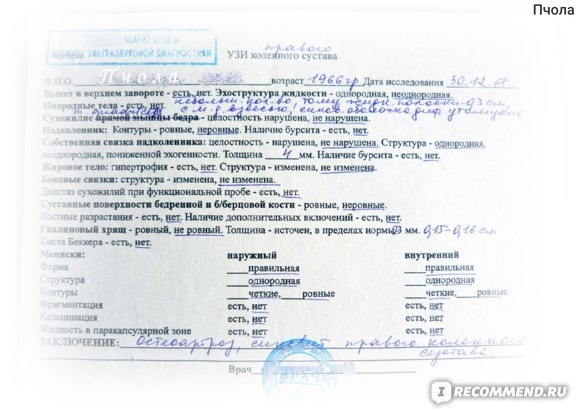 Пчола
УЛЬТРАЗВУКОВОЙ ДИАГНОСТИКИ
правого
УЗИ коленного сустава
Ф.И.О. Пчола возраст 1966 гр. Дата исследования 30.12.17
Выпот в верхнем завороте - есть, нет. Эхоструктура жидкости - однородная, неоднородная.
небольш. кол-во, толщ. жидк. полоски
Инородные тела - есть, нет.
Сухожилие прямой мышцы бедра - целостность нарушена, не нарушена.
Надколенник: Контуры - ровные, неровные. Наличие бурсита - есть, нет.
Собственная связка надколенника: целостность - нарушена, не нарушена. Структура - однородная,
неоднородная, пониженной эхогенности. Толщина 4 мм. Наличие бурсита - есть, нет.
Жировое тело: гипертрофия - есть, нет. Структура - изменена, не изменена.
Боковые связки: структура - изменена, не изменена.
Диастаз сухожилий при функциональной пробе - есть, нет.
Суставные поверхности бедренной и б/берцовой кости - ровные, неровные.
Костные разрастания - есть, нет. Наличие дополнительных включений - есть, нет.
Гиалиновый хрящ - ровный, не ровный. Толщина - источен, в пределах нормы 23 мм. 0,15-0,16 см.
Киста Беккера - есть, нет.
Мениски: наружный внутренний
Форма ____правильная ____правильная
Структура ____однородная ____однородная
Контуры ____четкие,____ровные ____четкие,____ровные
Фрагментация есть, нет есть, нет
Кальцинация есть, нет есть, нет
Жидкость в паракапсулярной зоне есть, нет есть, нет
ЗАКЛЮЧЕНИЕ: Остеоартроз, синовит правого коленного
сустава.
Врач
IRECOMMEND.RU